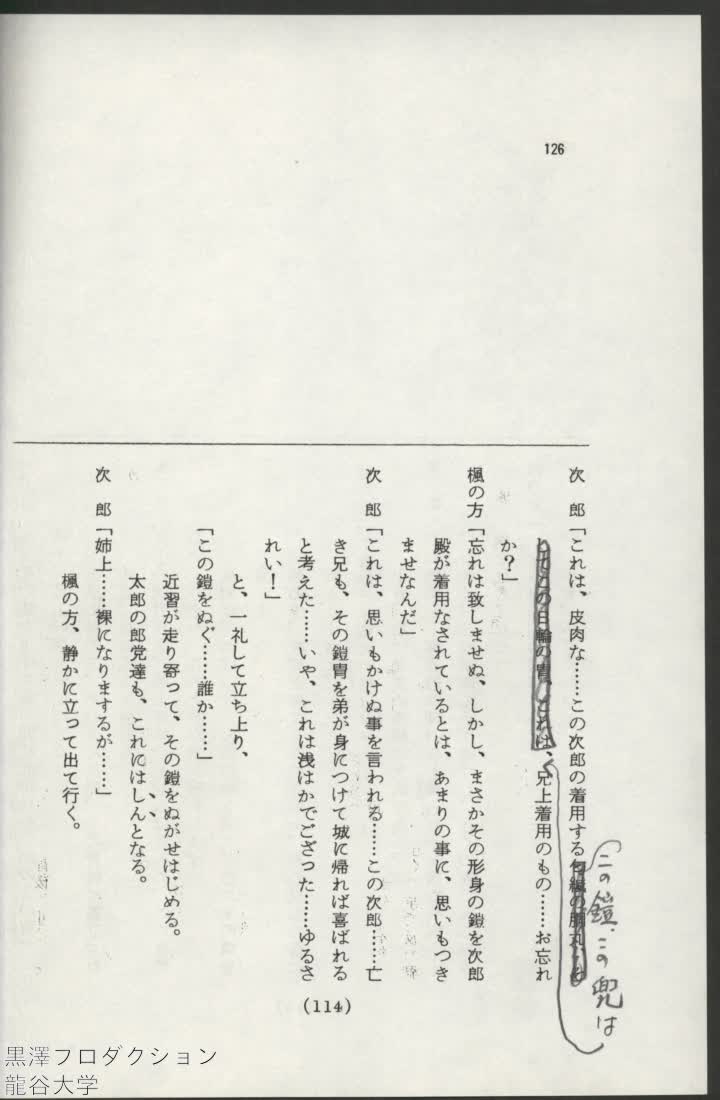 126
次郎「これは、皮肉な……この次郎の着用する匂縅の胴丸、そ
してこの日輪の冑、これは、兄上着用のもの……お忘れ
か？」
この鎧、この兜は
楓の方「忘れは致しませぬ、しかし、まさかその形身の鎧を次郎
殿が着用なされているとは、あまりの事に、思いもつき
ませなんだ」
次郎「これは、思いもかけぬ事を言われる……この次郎……亡
き兄も、その鎧冑を弟が身につけて城に帰れば喜ばれる
と考えた……いや、これは浅はかでござった……ゆるさ
れい！」
と、一礼して立ち上り、
「この鎧をぬぐ……誰か……」
近習が走り寄って、その鎧をぬがせはじめる。
太郎の郎党達も、これにはしんとなる。
次郎「姉上……裸になりまするが……」
楓の方、静かに立って出て行く。
(114)
黒澤プロダクション
龍谷大学